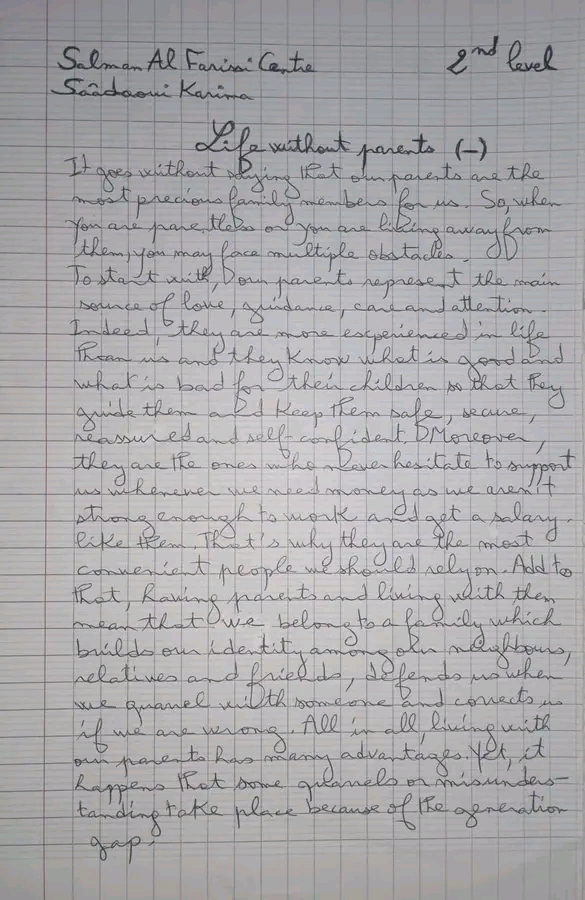 Salman Al Farissi Centre 2nd level
Saâdaoui Karima
Life without parents (-)
It goes without saying that our parents are the
most precious family members for us. So, when
you are parentless or you are living away from
them, you may face multiple obstacles.
To start with, our parents represent the main
source of love, guidance, care and attention.
Indeed, they are more experienced in life
than us and they know what is good and
what is bad for their children so that they
guide them and keep them safe, secure,
reassured and self-confident. Moreover,
they are the ones who never hesitate to support
us whenever we need money as we aren't
strong enough to work and get a salary
like them. That's why they are the most
convenient people we should rely on. Add to
that, having parents and living with them
mean that we belong to a family which
builds our identity among our neighbours,
relatives and friends, defends us when
we quarrel with someone and corrects us
if we are wrong. All in all, living with
our parents has many advantages. Yet, it
happens that some quarrels or misunders-
tanding take place because of the generation
gap.